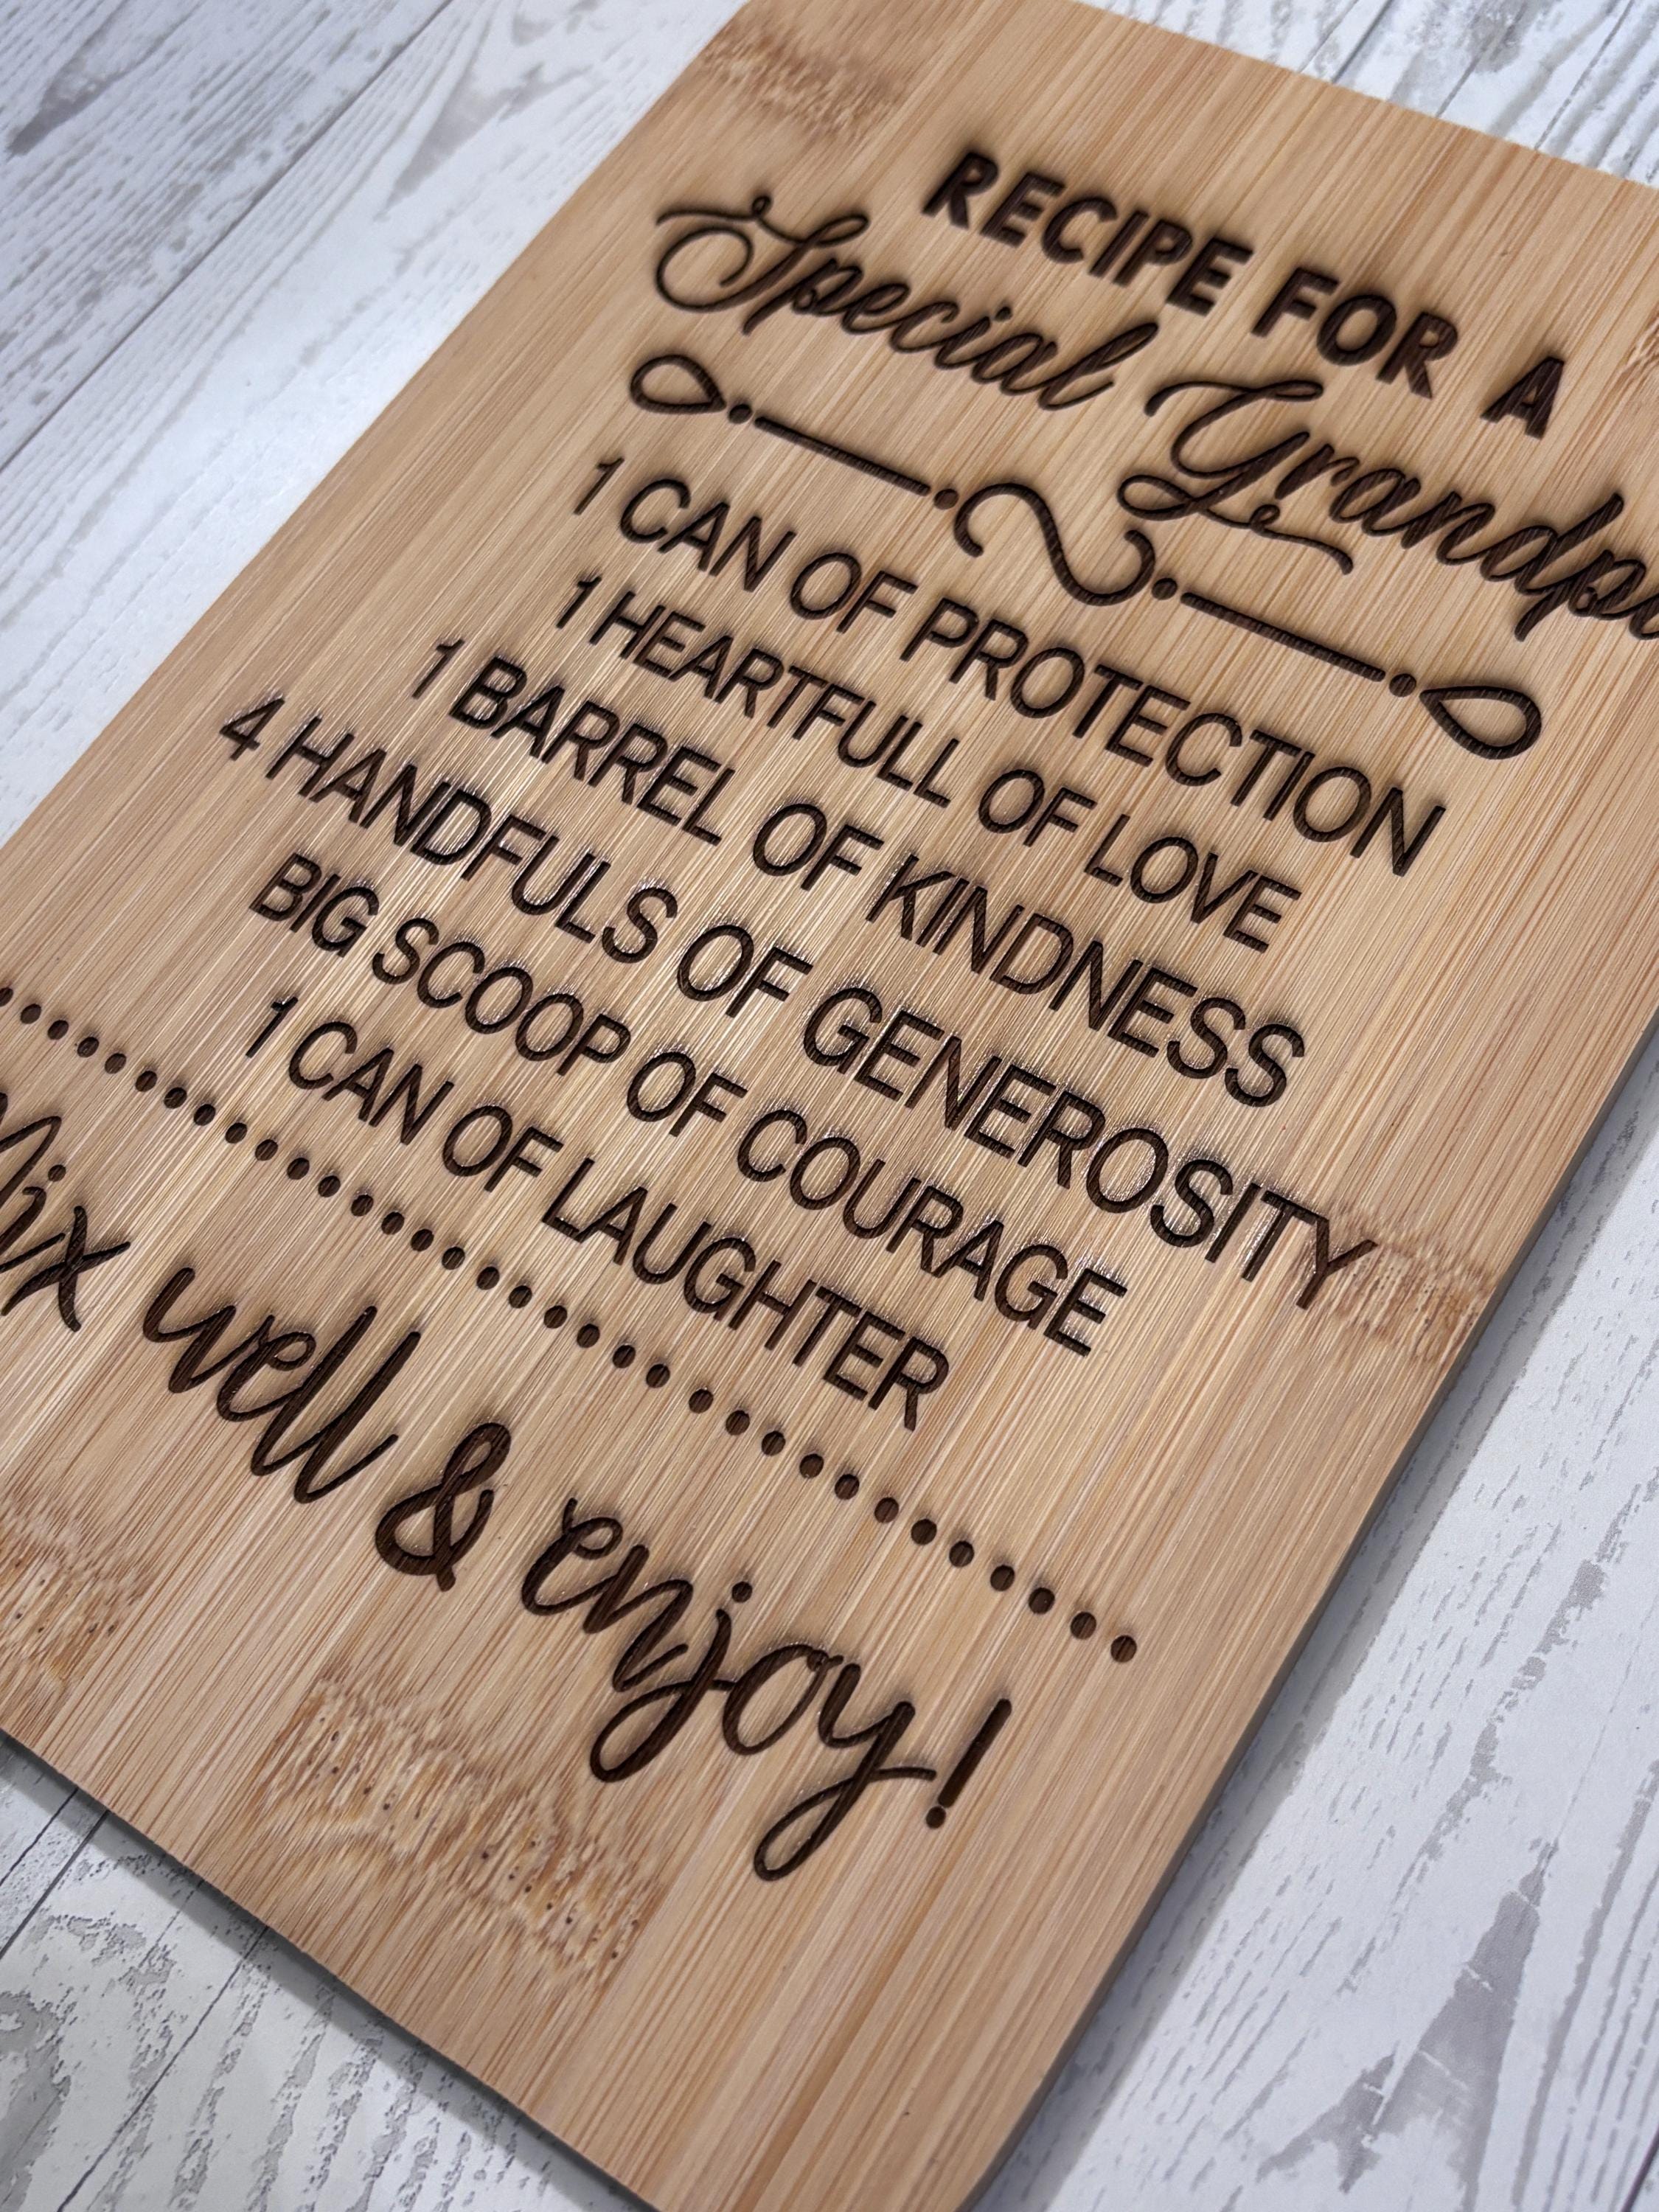 RECIPE FOR A
Special Grandpa
1 CAN OF PROTECTION
1 HEARTFULL OF LOVE
1 BARREL OF KINDNESS
4 HANDFULS OF GENEROSITY
BIG SCOOP OF COURAGE
1 CAN OF LAUGHTER
Mix well & enjoy!